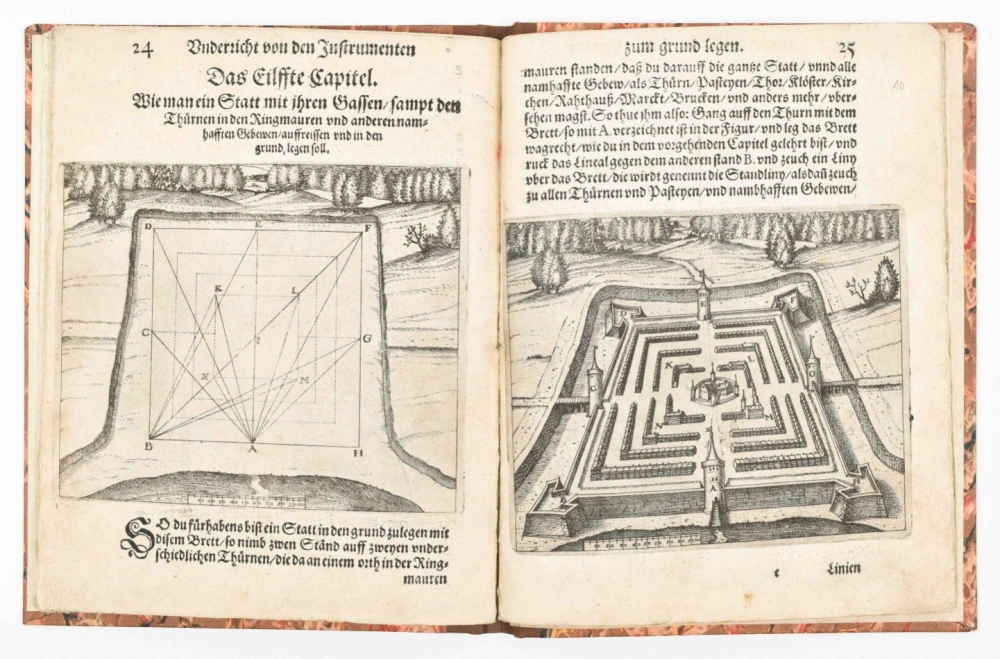 24 Vnderricht von den Instrumenten
9
Das Eilffte Capitel.
Wie man ein Statt mit ihren Gassen/sampt den
Thürnen in den Ringmauren vnd anderen nam-
hafften Gebewen/auffreissen vnd in den
grund, legen soll.
D E F
K L
C I G
N M
B A H
SO du fürhabens bist ein Statt in den grund zulegen mit
disem Brett/so nimb zwen Ständ auff zweyen vnder-
schiedlichen Thürnen/die da an einem orth in der Ring-
mauren
zum grund legen. 25
10
mauren standen/daß du darauff die gantze Statt/vnnd alle
namhaffte Gebew/als Thürn/Pasteyen/Thor/Klöster/Kir-
chen/Rahthauß/Marckt/Brucken/vnd anders mehr/vber-
sehen magst. So thue jhm also: Gang auff den Thurn mit dem
Brett/so mit A. verzeichnet ist in der Figur/vnd leg das Brett
wagrecht/wie du in dem vorgehenden Capitel gelehrt bist/vnd
ruck das Lineal gegen dem anderen stand B. vnd zeuch ein Liny
vber das Brett/die wirdt genennt die Standliny/alsdañ zeuch
zu allen Thürnen vnd Pasteyen/vnd nambhafften Gebewen/
E
K L
C G
N
A
c Linien